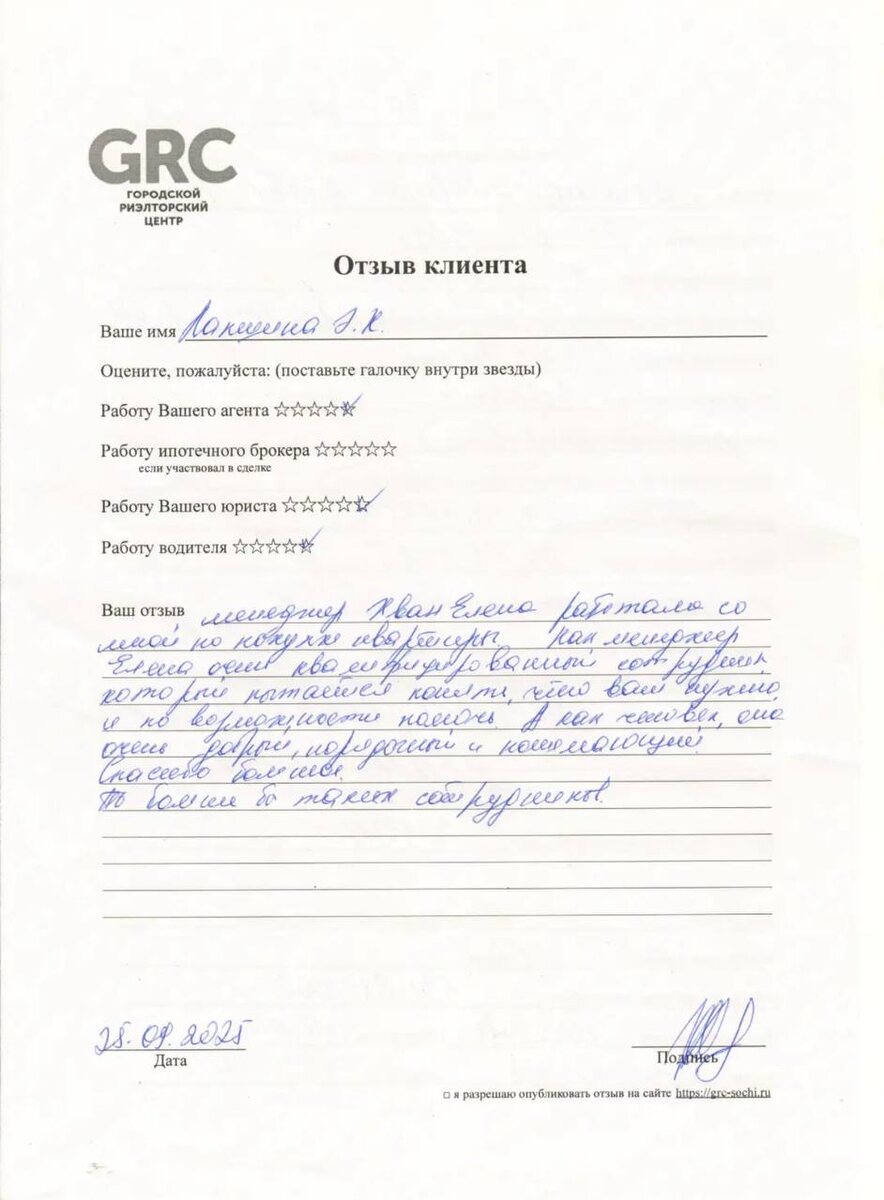 GRC
ГОРОДСКОЙ
РИЭЛТОРСКИЙ
ЦЕНТР
Отзыв клиента
Ваше имя Лакшина Э.К.
Оцените, пожалуйста: (поставьте галочку внутри звезды)
Работу Вашего агента ☆☆☆☆☆
Работу ипотечного брокера ☆☆☆☆☆
если участвовал в сделке
Работу Вашего юриста ☆☆☆☆☆
Работу водителя ☆☆☆☆☆
Ваш отзыв менеджер Хван Елена работала со
мной по покупке квартиры. Как менеджер
Елена очень квалифицированный сотрудник,
который пытается понять, что вам нужно
и по возможности помочь. А как человек, она
очень добрый, порядочный и понимающий.
Спасибо большое.
По больше бы таких сотрудников.
25.09.2025
Дата
Подпись
□ я разрешаю опубликовать отзыв на сайте https://grc-sochi.ru